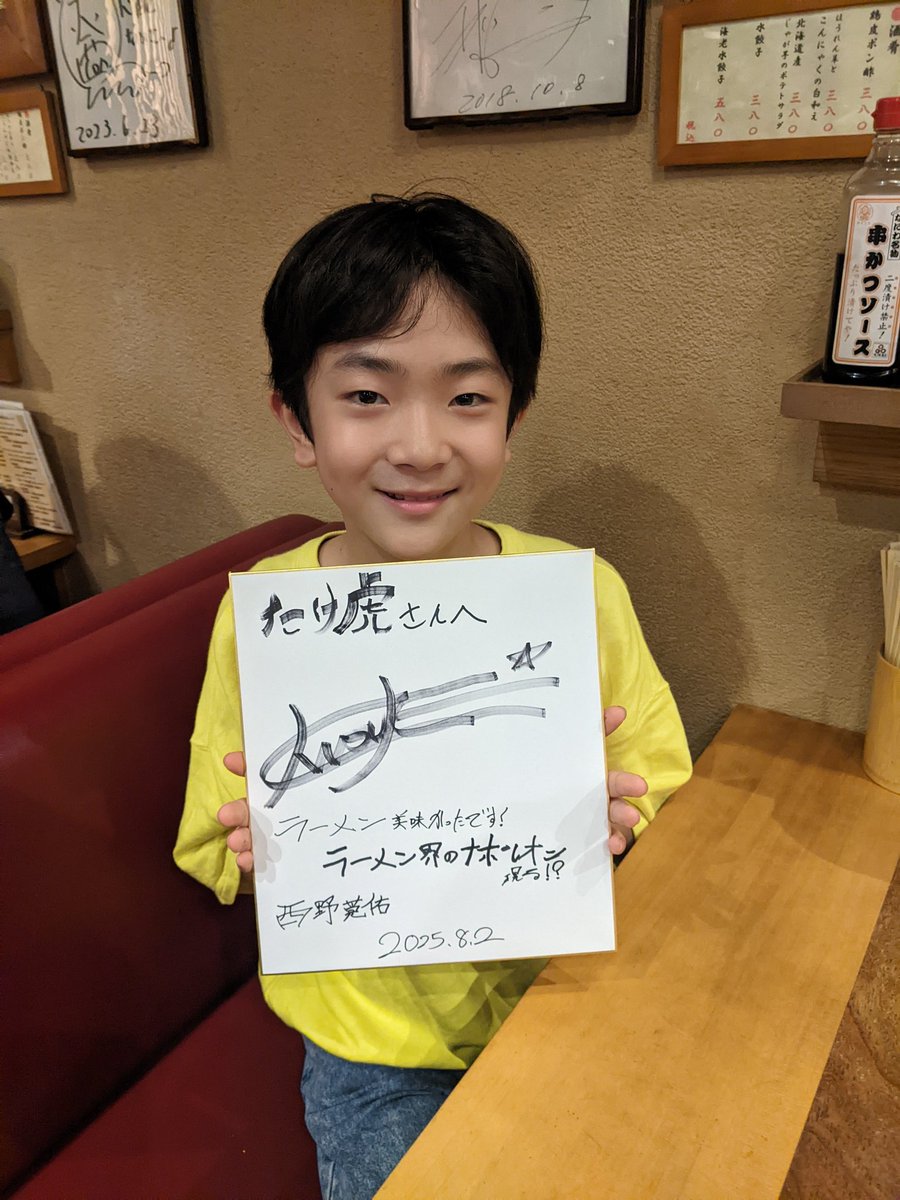 2023.6.23
2018.10.8
酒肴
鶏皮ポン酢 三八〇
ほうれん草と
こんにゃくの白和え 三八〇
北海道産
じゃが芋のポテトサラダ 三八〇
水餃子 三八〇
海老水餃子 五八〇
税込
なにわ名物
串かつソース
二度漬け禁止!
たっぷり漬けてや!
たけ虎さんへ
ラーメン美味かったです!
ラーメン界のナポレオン
現る!?
西野莵佑
2025.8.2